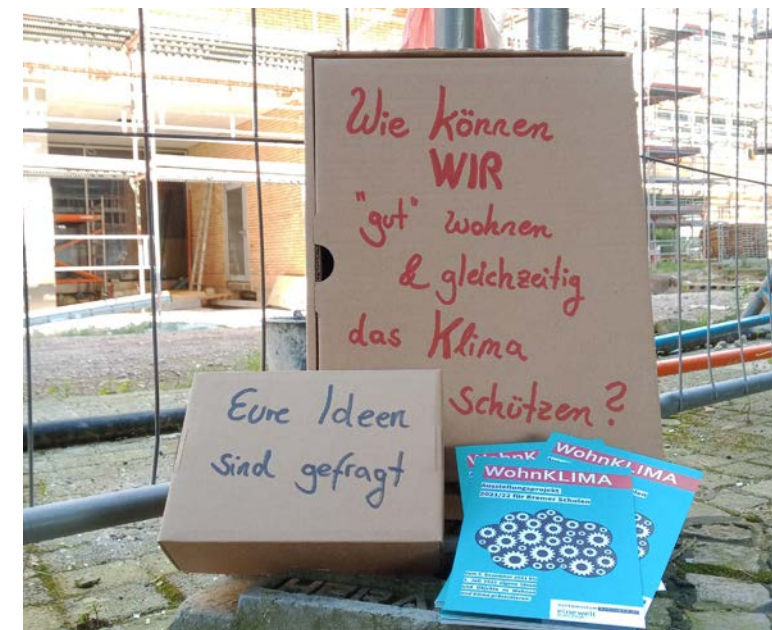 Wie können
WIR
"gut" wohnen
& gleichzeitig
das Klima
schützen?
Eure Ideen
sind gefragt
WohnKLIMA
WohnKLIMA
Ausstellungsprojekt
2021/22 für Bremer Schulen
einewelt